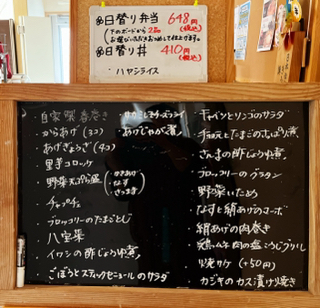 日替り弁当 648円(税込)
(下のボードから2品
お選びいただきお詰めして仕上げます。)
日替り丼 410円(税込)
・ハヤシライス
自家製春巻き
・からあげ(3コ)
・あげぎょうざ(4コ)
・里芋コロッケ
・野菜天ぷら盛(なす
・チャプチェ
・ブロッコリーのたまごとじ
・八宝菜
・イワシの酢じょうゆ煮
・ごぼうとスティックセニョールのサラダ
・あげじゃが煮
・キャベツとリンゴのサラダ
・さんまの酢じょうゆ煮
・ブロッコリーのグラタン
・野菜いため
・なすと絹あげのマーボ
・絹あげの肉巻き
・焼サケ(+50円)
・カジキのカス漬け焼き